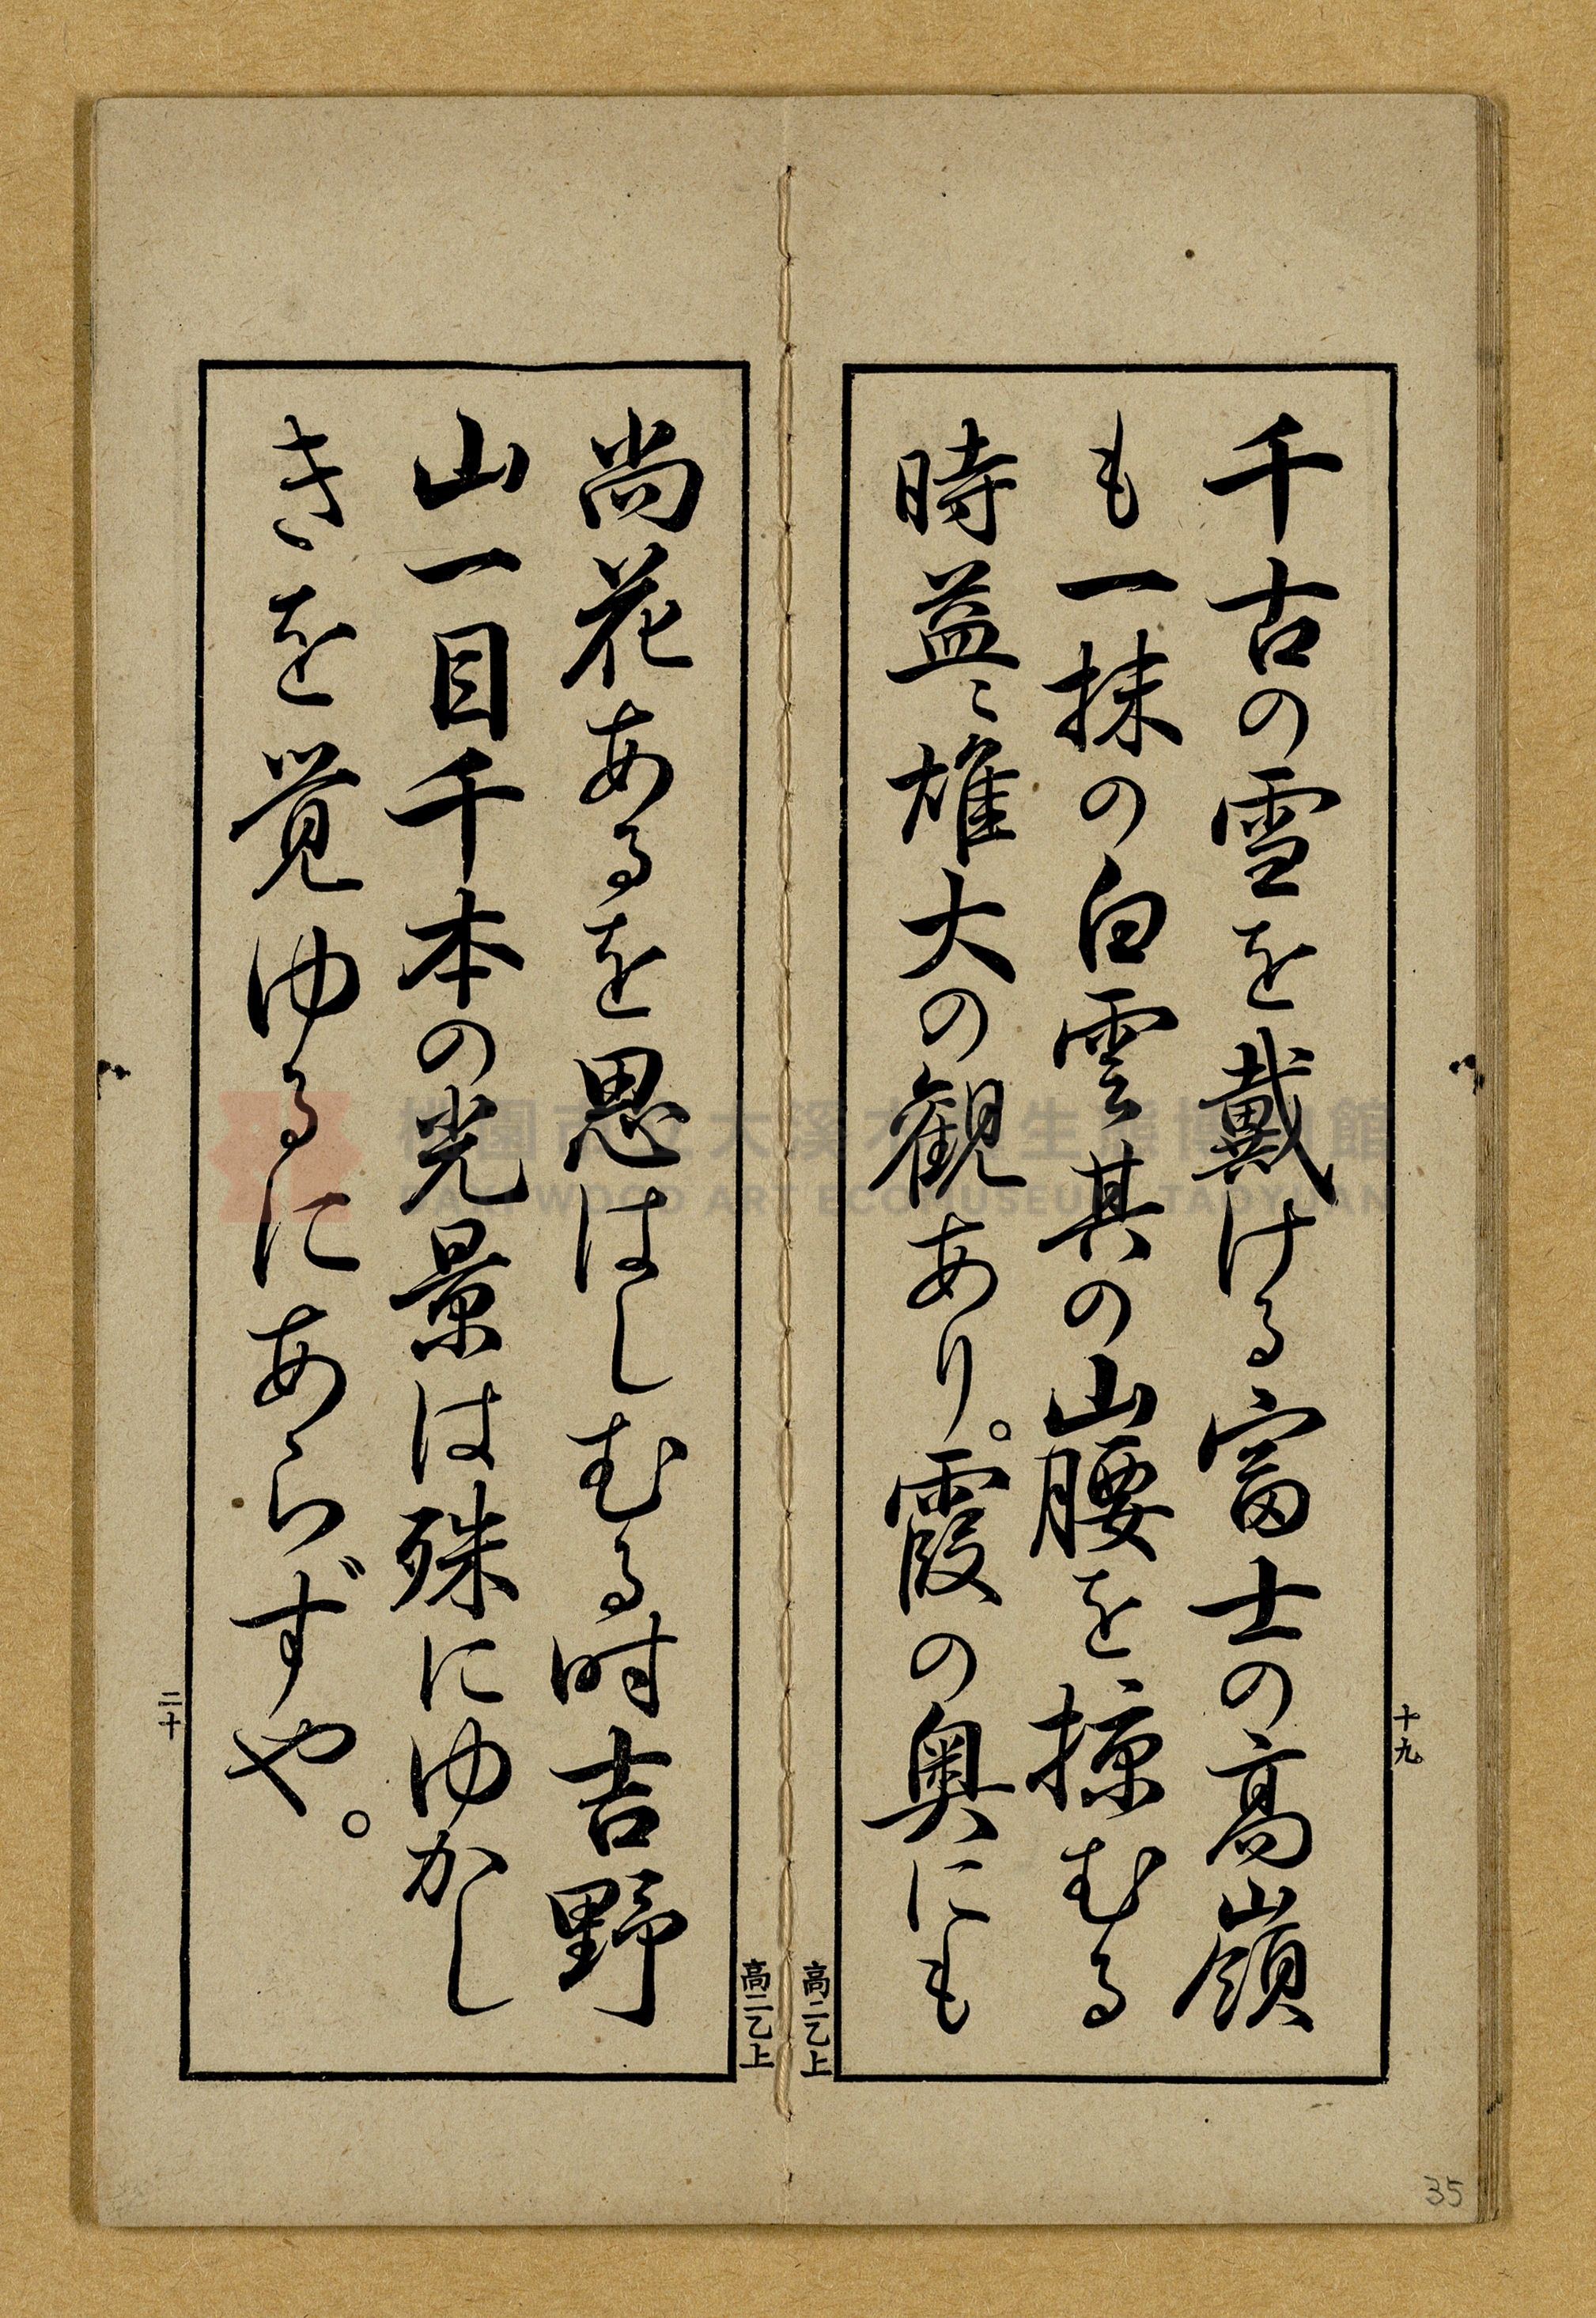 千古の雪を戴ける富士の高嶺
も一抹の白雲其の山腰を掠むる
時益〻雄大の観あり。霞の奥にも
十九
高二乙上
尚花あるを思はしむる時吉野
山一目千本の光景は殊にゆかし
きを覚ゆるにあらずや。
高二乙上
二十
35